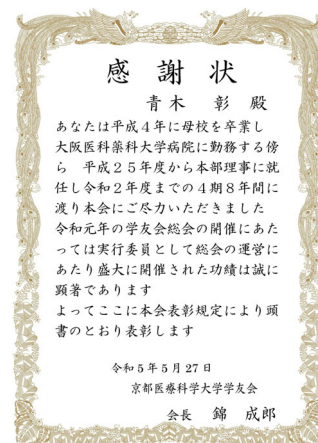 感謝状
青木 彰 殿
あなたは平成４年に母校を卒業し
大阪医科薬科大学病院に勤務する傍
ら 平成２５年度から本部理事に就
任し令和２年度までの４期８年間に
渡り本会にご尽力いただきました
令和元年の学友会総会の開催にあた
っては実行委員として総会の運営に
あたり盛大に開催された功績は誠に
顕著であります
よってここに本会表彰規定により頭
書のとおり表彰します
令和５年５月２７日
京都医療科学大学学友会
会長 錦 成郎